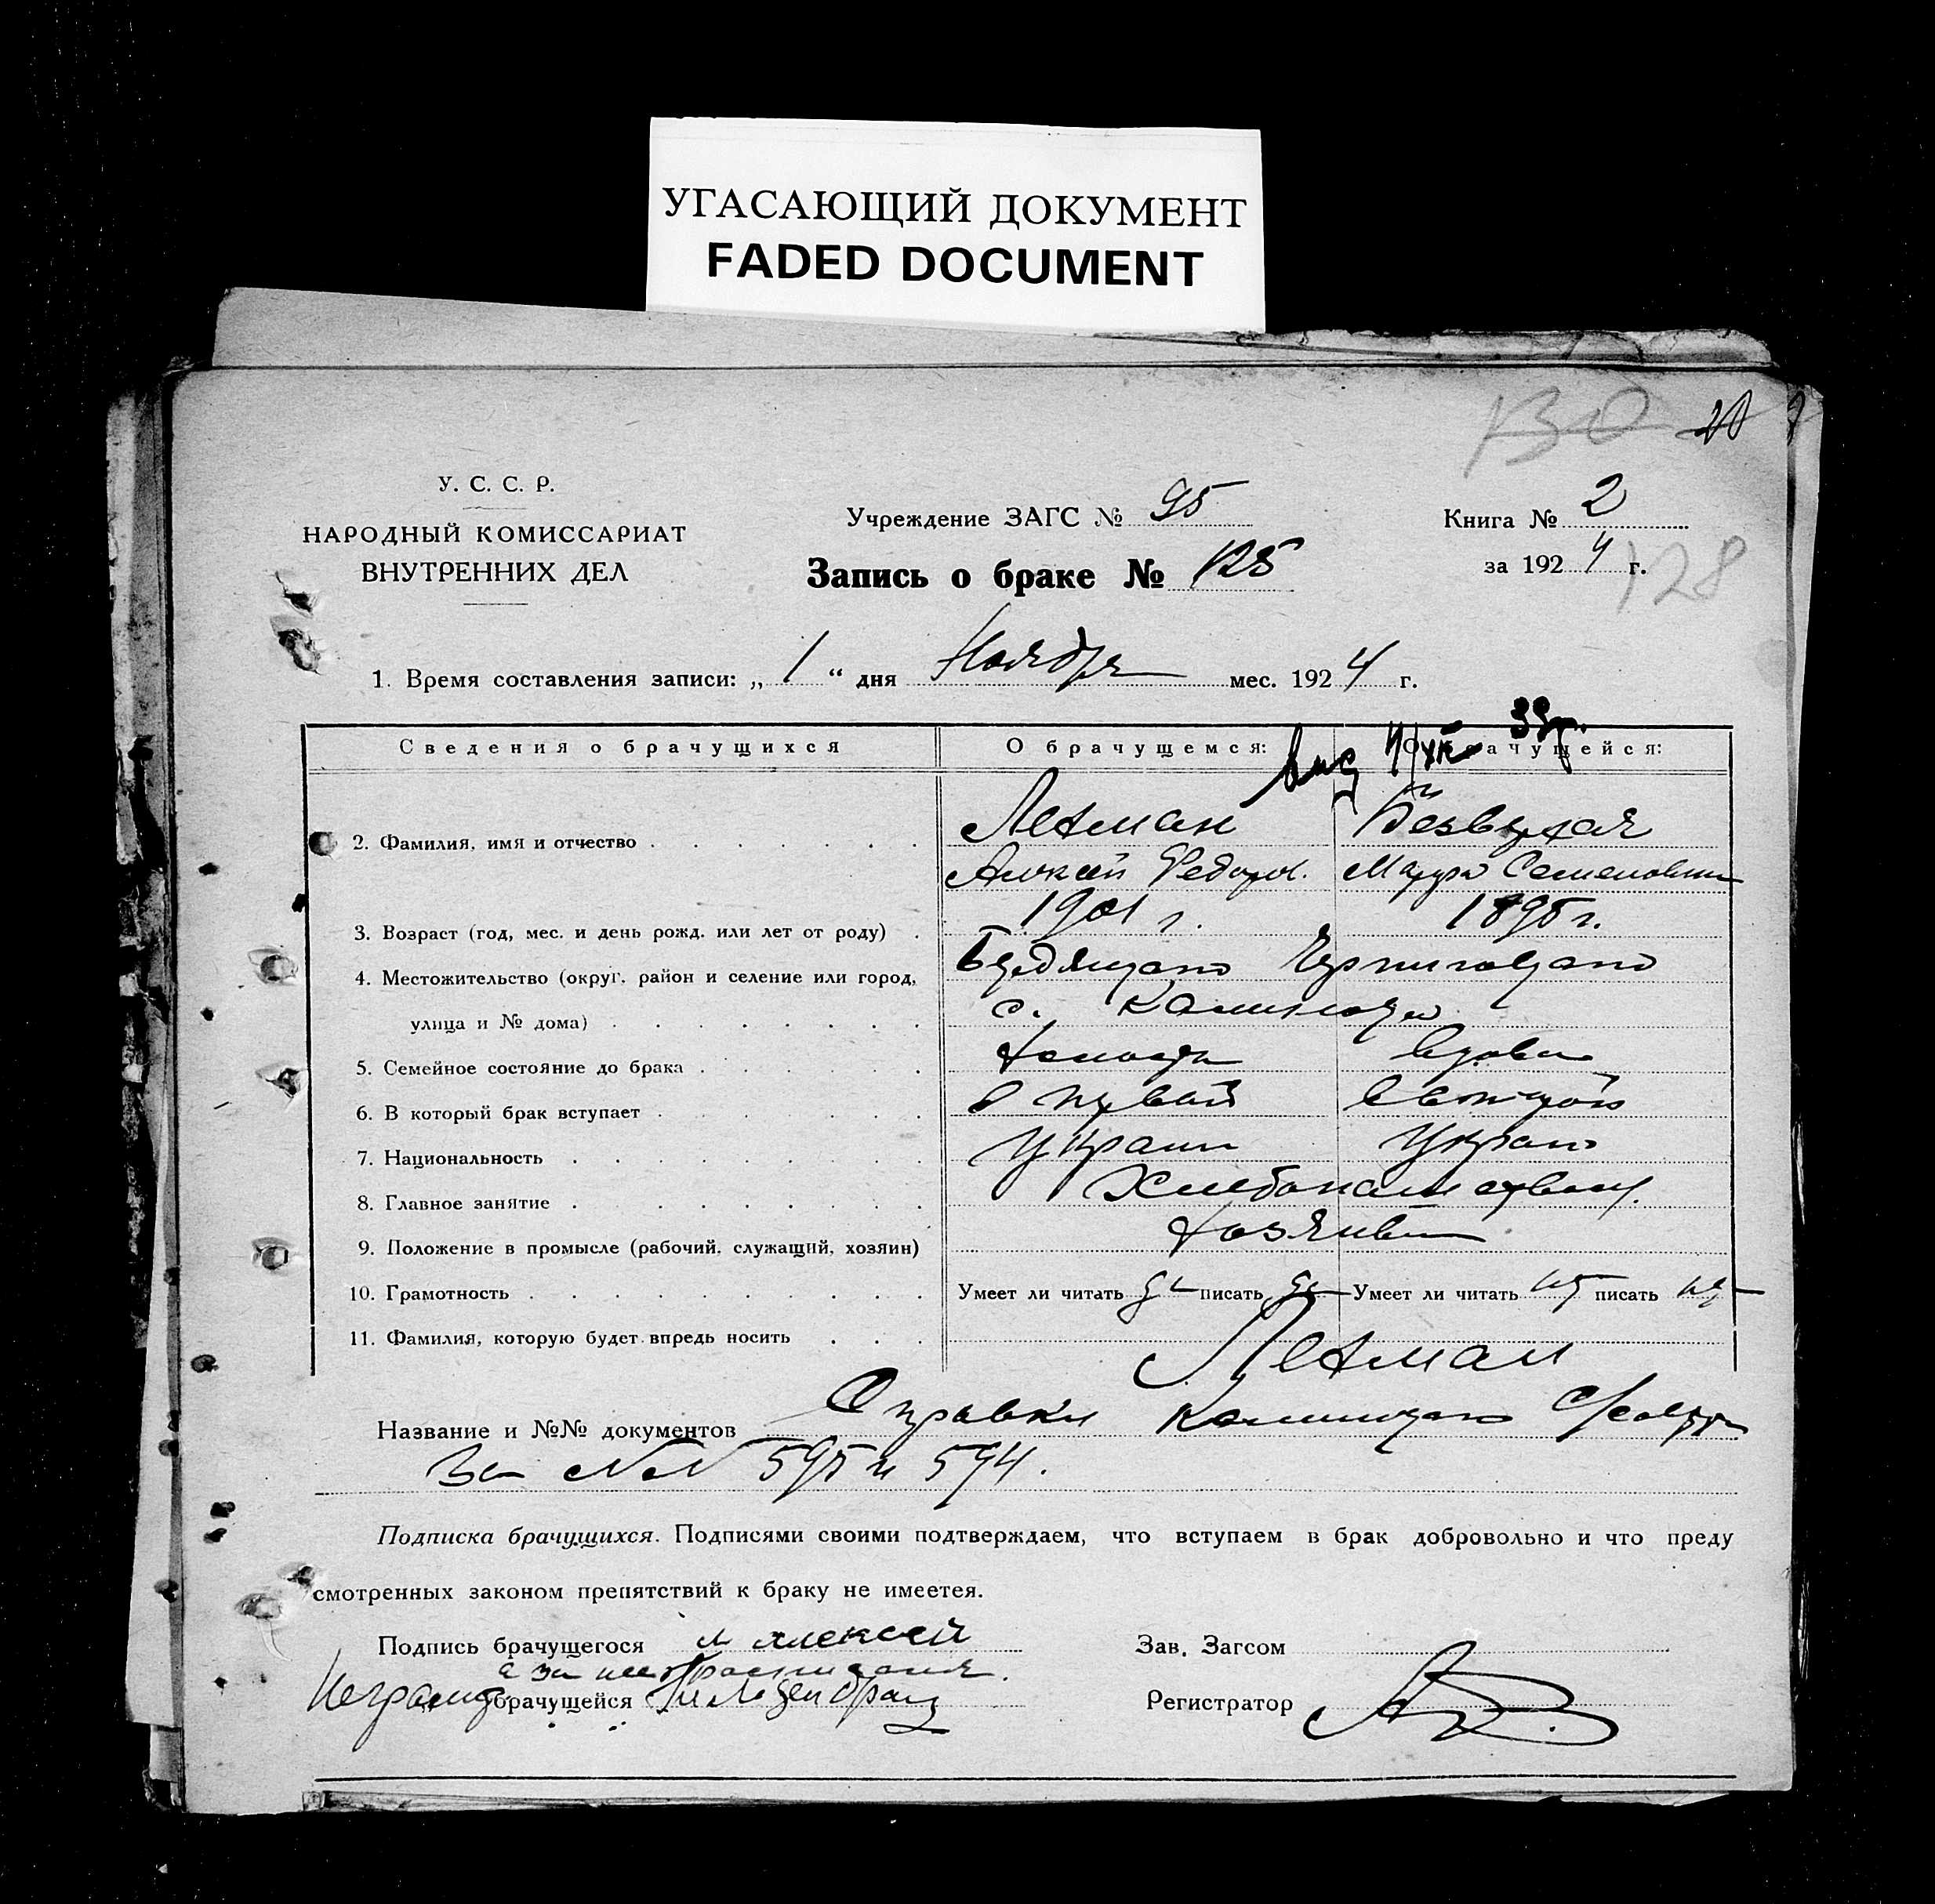 УГАСАЮЩИЙ ДОКУМЕНТ
FADED DOCUMENT
У. С. С. Р.
НАРОДНЫЙ КОМИССАРИАТ
ВНУТРЕННИХ ДЕЛ
Учреждение ЗАГС № 95
Запись о браке № 125
Книга № 2
за 1924 г.
128
1. Время составления записи: „ 1 “ дня Ноября мес. 1924 г.
Сведения о брачущихся О брачущемся:
2. Фамилия, имя и отчество Летман
Алексей Федор. Мавра Семеновна
3. Возраст (год, мес. и день рожд. или лет от роду) 1901 г. 1895 г.
4. Местожительство (округ, район и селение или город, Бердянского Черниговского
улица и № дома) с.
5. Семейное состояние до брака холост вдова
6. В который брак вступает в первый во второй
7. Национальность Украин Украин
8. Главное занятие
9. Положение в промысле (рабочий, служащий, хозяин) хозяева
10. Грамотность Умеет ли читать да писать да Умеет ли читать нет писать нет
11. Фамилия, которую будет впредь носить Летман
Название и №№ документов Справки
За №№ 595 и 594.
Подписка брачущихся. Подписями своими подтверждаем, что вступаем в брак добровольно и что преду
смотренных законом препятствий к браку не имеетея.
Подпись брачущегося Алексей
Зав. Загсом
брачущейся
Регистратор